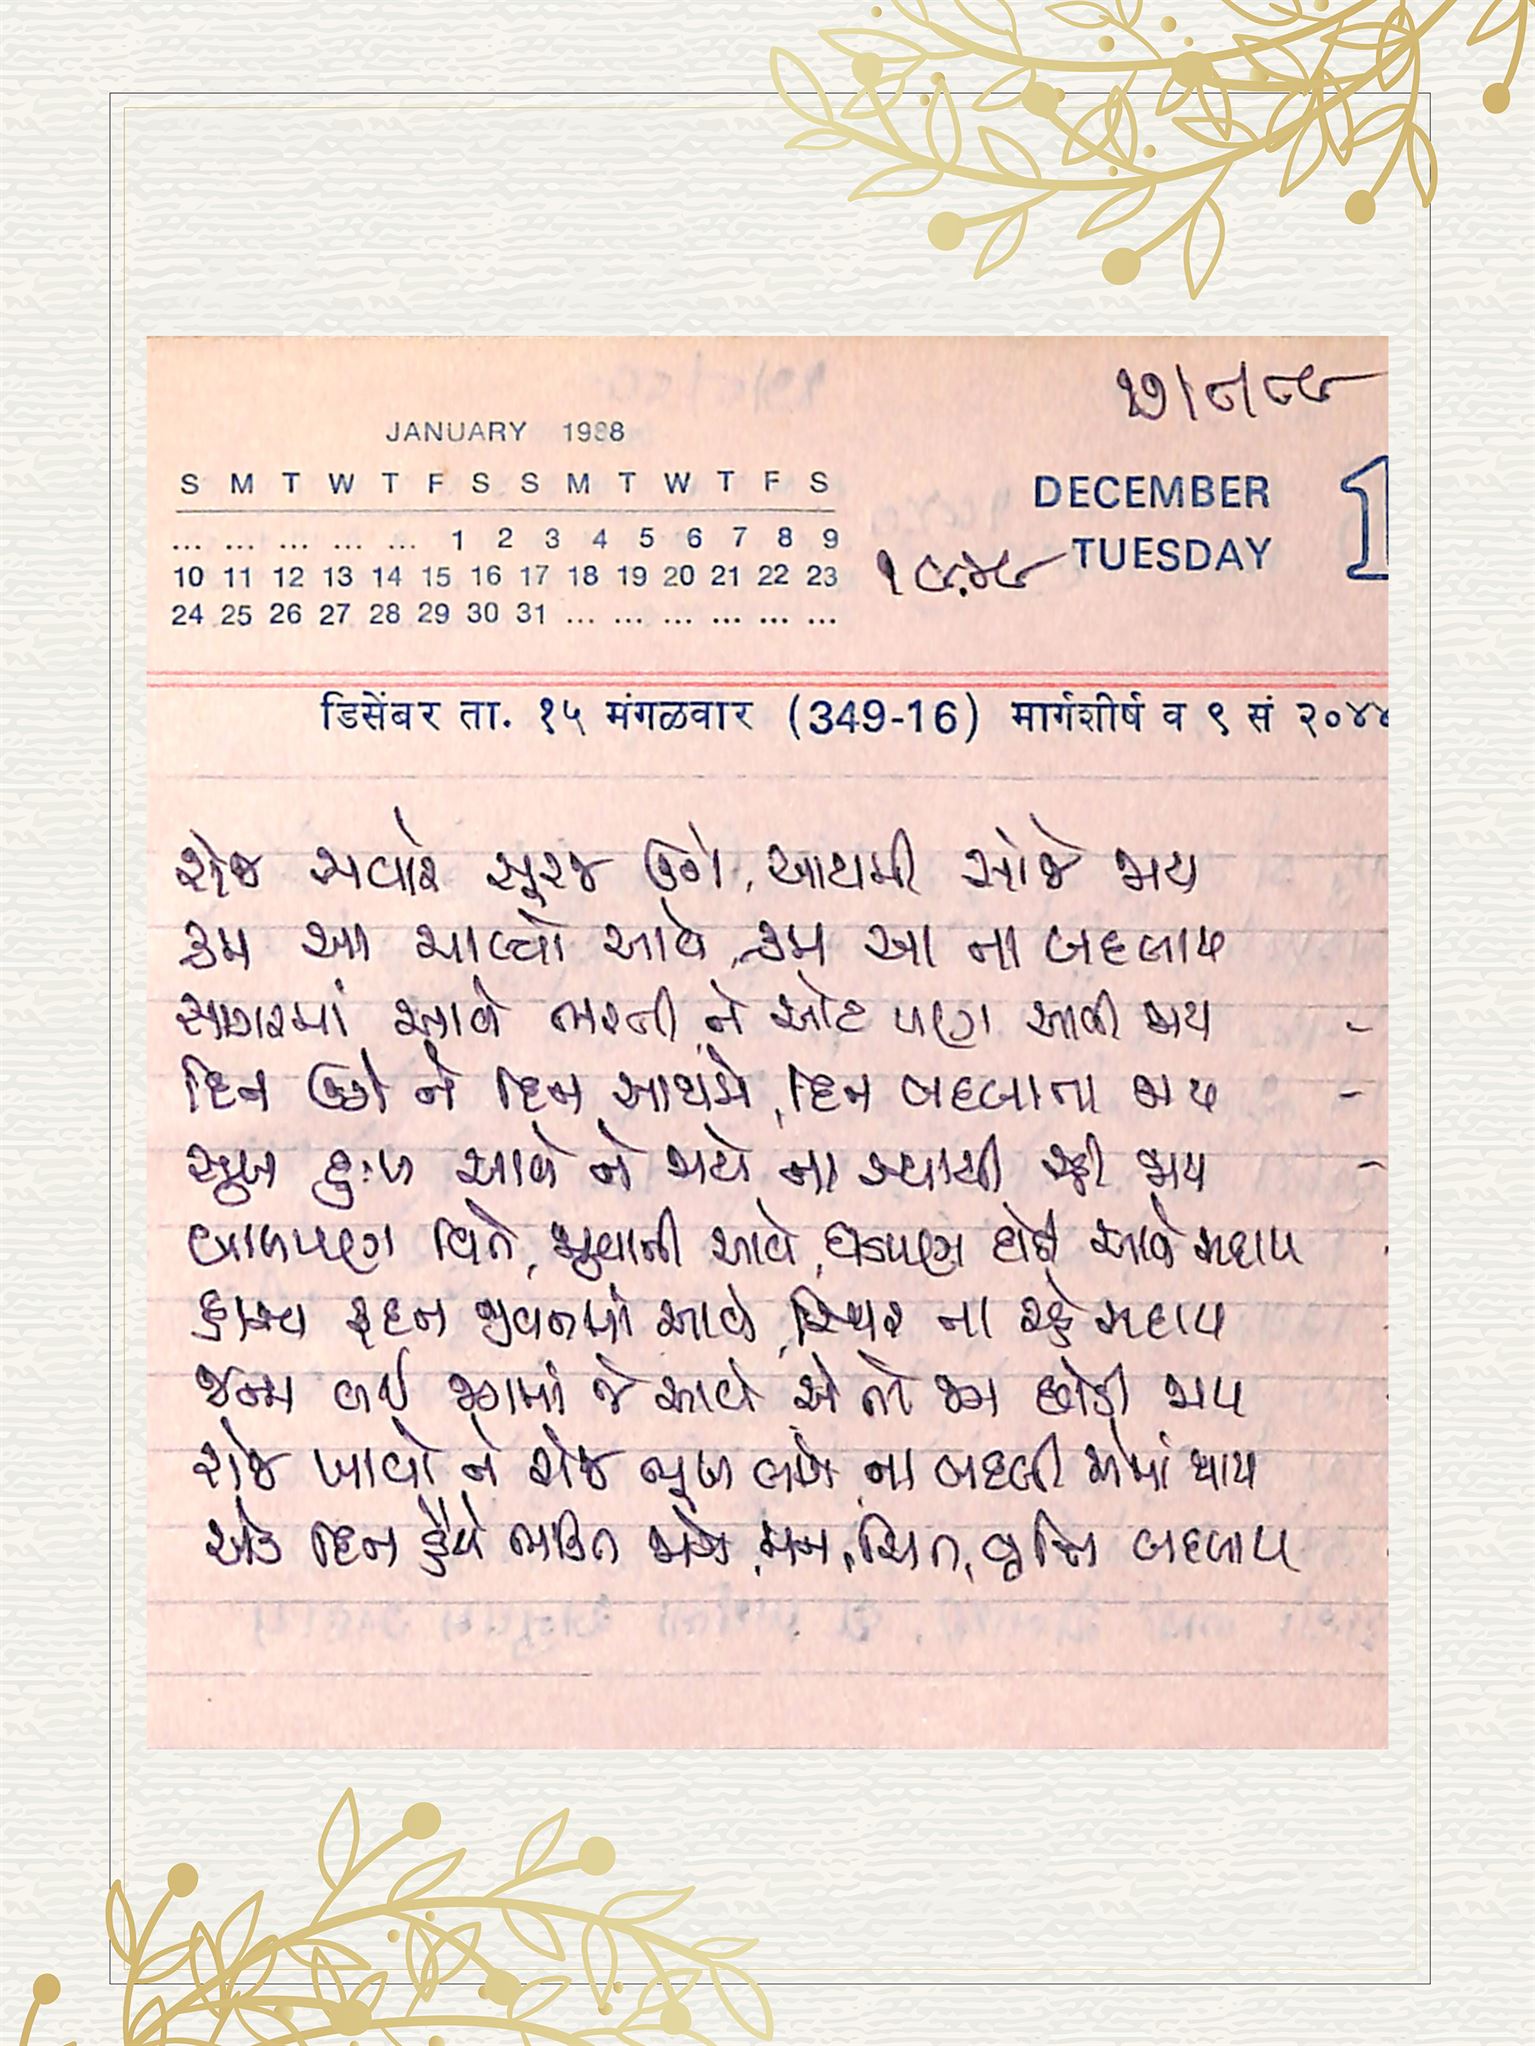 ૨૭/૮/૮૯
JANUARY 1988
S M T W T F S S M T W T F S
... ... ... ... ... 1 2 3 4 5 6 7 8 9
10 11 12 13 14 15 16 17 18 19 20 21 22 23
24 25 26 27 28 29 30 31 ... ... ... ... ... ...
DECEMBER
TUESDAY
૧૯૭૯
डिसेंबर ता. १५ मंगळवार (349-16) मार्गशीर्ष व ९ सं २०४४
રોજ સવારે સૂરજ ઉગે, આથમી સાંજે જાય
ક્રમ આ ચાલ્યો આવે, ક્રમ આ ના બદલાય
સાગરમાં આવે ભરતી ને ઓટ પણ આવી જાય
દિન ઉગે ને દિન આથમે, દિન બદલાતા જાય
સુખ દુઃખ આવે ને જાયે ના સ્થાયી રહી જાય
બાળપણ વિતે, જુવાની આવે, ઘડપણ દોડી આવે સદાય
હાસ્ય રૂદન જીવનમાં આવે, સ્થિર ના રહે સદાય
જન્મ લઈ જગમાં જે આવે એ તો જગ છોડી જાય
રોજ ખાવો ને રોજ ભૂખ લાગે ના બદલી એમાં થાય
એક દિન હૈયે ભક્તિ જાગે, મન, ચિત્ત, વૃત્તિ બદલાય